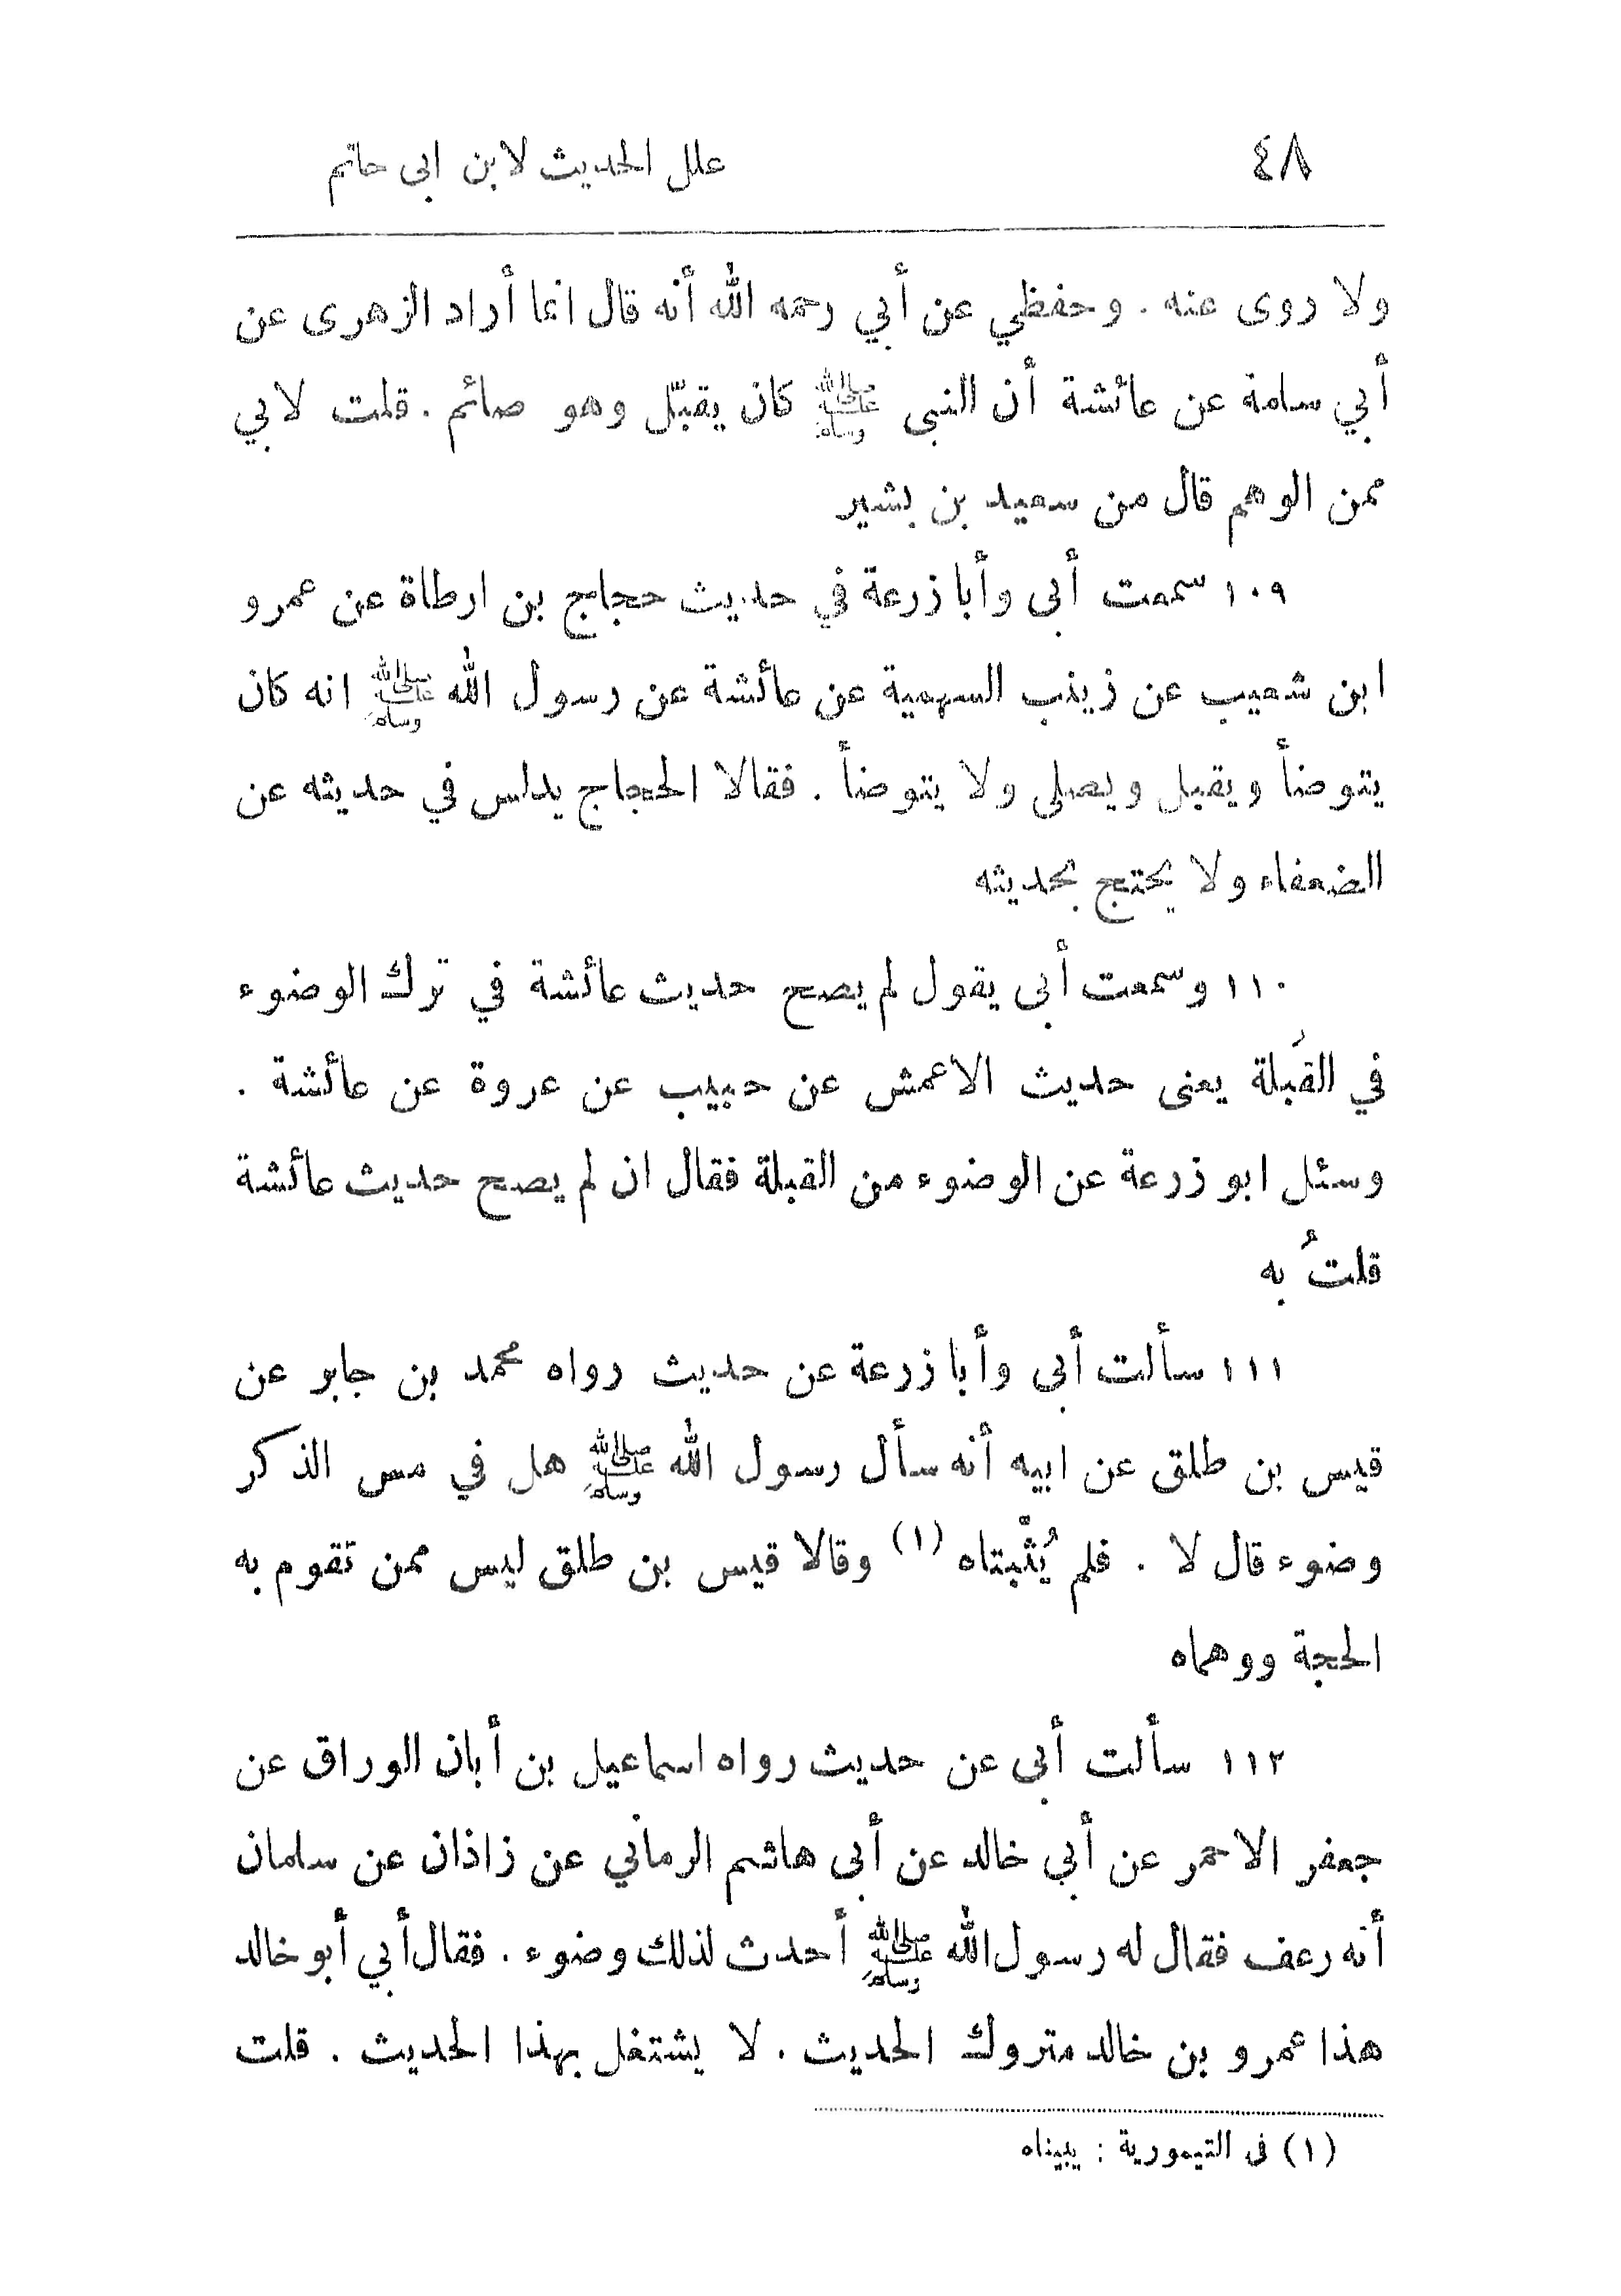 ٤٨ علل الحديث لابن ابى حاتم
ولا روى عنه . وحفظي عن أبي رحمه الله أنه قال انما أراد الزهرى عن
أبي سلمة عن عائشة أن النبى ﷺ كان يقبّل وهو صائم . قلت لابي
ممن الوهم قال من سعيد بن بشير
١٠٩ سمعت أبى وأبا زرعة في حديث حجاج بن ارطاة عن عمرو
ابن شعيب عن زينب السهمية عن عائشة عن رسول الله ﷺ انه كان
يتوضأ ويقبل ويصلى ولا يتوضأ . فقالا الحجاج يدلس في حديثه عن
الضعفاء ولا يحتج بحديثه
١١٠ وسمعت أبى يقول لم يصح حديث عائشة في ترك الوضوء
في القُبلة يعنى حديث الاعمش عن حبيب عن عروة عن عائشة .
وسئل ابو زرعة عن الوضوء من القبلة فقال ان لم يصح حديث عائشة
قلتُ به
١١١ سألت أبى وأبا زرعة عن حديث رواه محمد بن جابر عن
قيس بن طلق عن ابيه أنه سأل رسول الله ﷺ هل في مس الذكر
وضوء قال لا . فلم يُثْبتاه (١) وقالا قيس بن طلق ليس ممن تقوم به
الحجة ووهماه
١١٢ سألت أبى عن حديث رواه اسماعيل بن أبان الوراق عن
جعفر الاحمر عن أبي خالد عن أبى هاشم الرماني عن زاذان عن سلمان
أنه رعف فقال له رسول الله ﷺ أحدث لذلك وضوء . فقال أبي أبو خالد
هذا عمرو بن خالد متروك الحديث . لا يشتغل بهذا الحديث . قلت
(١) فى التيمورية : يبيناه